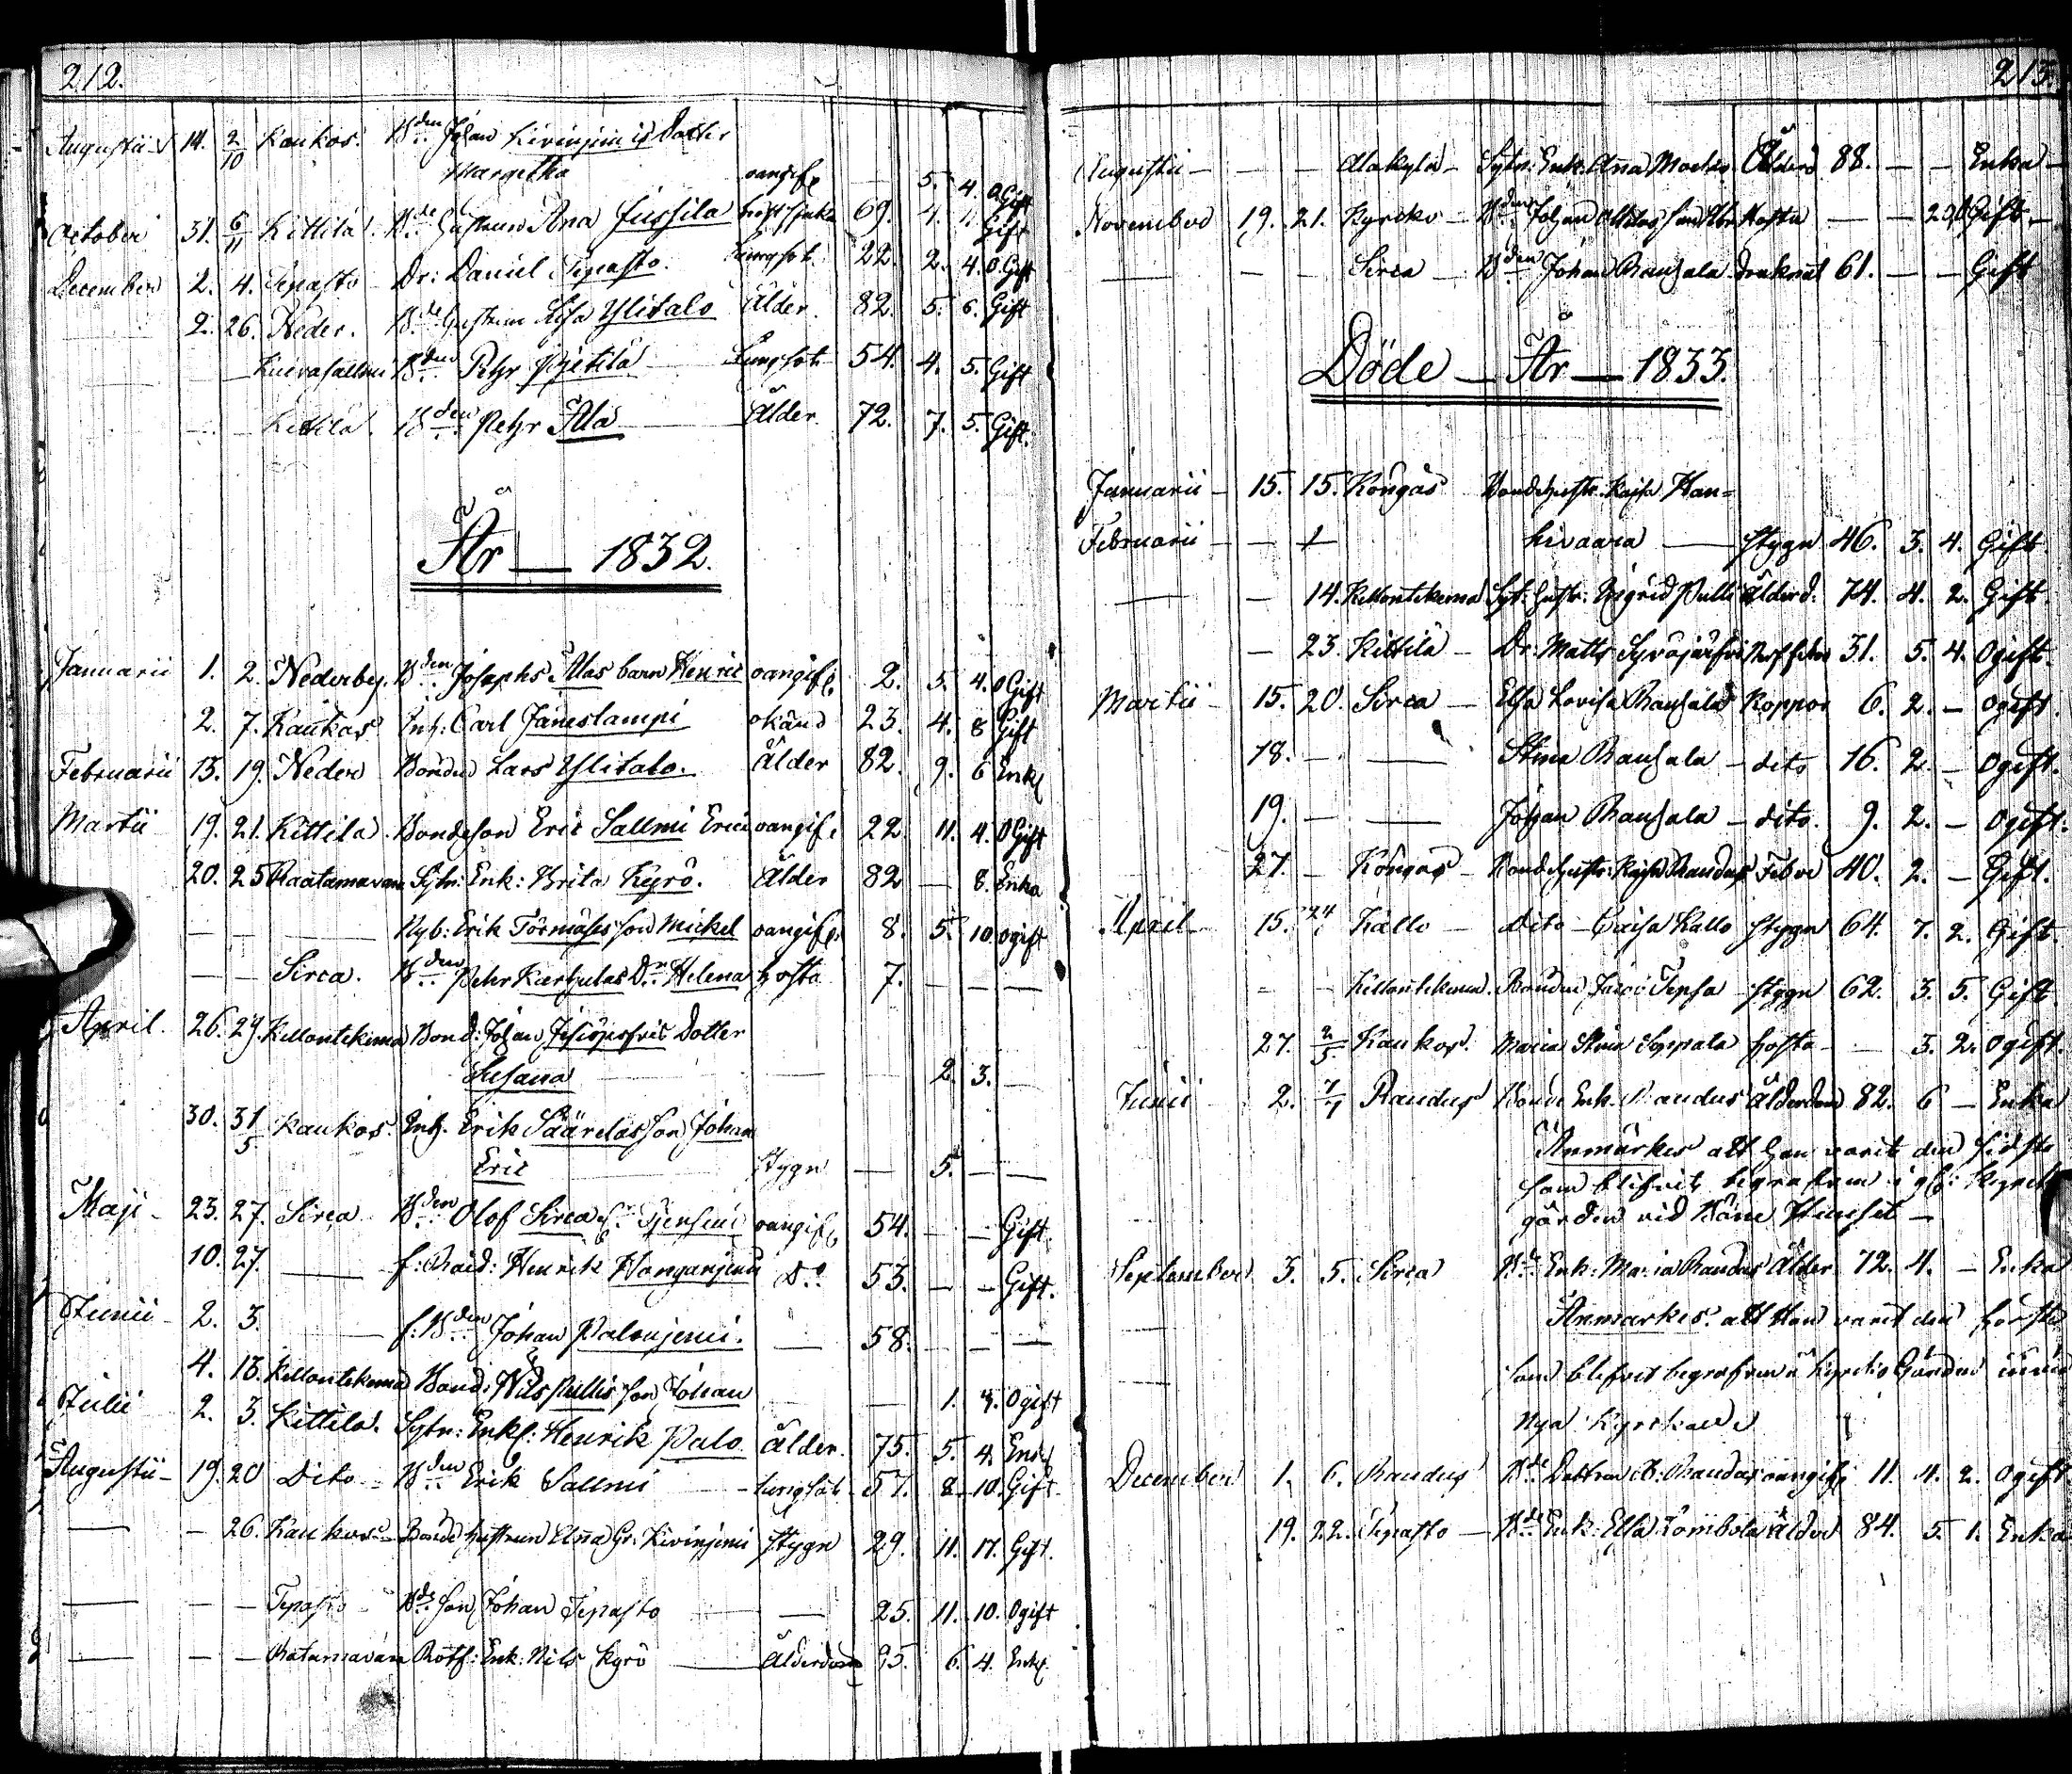 212.
Augustii 14. 2/10 Kaukos. B:den Johan Kivinjemis Dotter
Margetha oangifv. — 5. 4. OGift
October 31. 6/11 Kittilä. B:de Hustrun Ana Jussila 69. 4. 1. Gift
December 2. 4. Tepasto Dr: Daniel Tepasto. Lungsot 22. 2. 4. OGift
2. 26. Neder. B:de Hustrun Lisa Ylitalo Ålder 82. 5. 6. Gift
— — Kuivasallmi B:den Pehr Pjetilä Lungsot 54. 4. 5. Gift
— — Kittilä. B:den Pehr Alla Ålder 72. 7. 5. Gift.
År — 1832.
Januarii 1. 2. Nederby. B:den Josephs Alas barn Henric oangifv. 2. 5. 4. OGift
2. 7. Kaukos Inh: Carl Jäneslampi okänd 23. 4. 8 Gift
Februarii 13. 19. Neder Bonden Lars Ylitalo. Ålder 82. 9. 6 Enkl
Martii 19. 21. Kittilä. Bondeson Eric Sallmi Erici oangif. 22. 11. 4. OGift
20. 25 Raatamavara Sytn: Enk: Brita Kyrö. Ålder 82 — 8. Enka
— — — Nyb: Erik Törmäsis son Mickel oangifv. 8. 5. 10. ogift
— — Sirca. B:den Pehr Karhulas Dr. Helena hosta 7. — — —
April. 26. 29. Kellontekemä Bond: Johan Jesiöjerfvis Dotter
Susana — — 2. 3. —
30. 31/5 Kaukos. Inh. Erik Säärelas son Johan
Eric Stygn — 5. — —
Maji 23. 27. Sirca B:den Olof Sirca oangifv 54. — — Gift.
10. 27. — f: Raid: Henrik Hanganjemi D:o 53. — — Gift.
Junii 2. 3. — f: B:den Johan Palonjemi. — 58. — — —
4. 18. Kellontekemä Bond: Nils Pullis son Johan — — 1. 4. Ogift
Julii 2. 3. Kittilä. Sytn: Enkl: Henrik Palo Ålder. 75. 5. 4. Enkl
Augustii 19. 20 Dito B:den Erik Sallmi lungsot 57. 8. 10. Gift
— — 26. Kaukos Bonde hustrun Ana Gr: Kivinjemi stygn 29. 11. 17. Gift.
— — — Tepasto B:de son Johan Tepasto — 25. 11. 10. Ogift
— — — Ratamavara Rotf: Enk: Nils Kyrö Ålderdom 95. 6. 4. Enkl.
213.
Augustii — — Alakylä Sytn: Enk: Ana Ålderd 88. — — Enka
November 19. 21. Kyrkko B:dens Johan son Hosta — — OGift
— — — Sirca B:den Johan Rauhala drunknat 61. — — Gift
Döde — År — 1833.
Januarii 15. 15. Köngäs Bondehustr: Kajsa Han=
Februarii — + kivaara — stygn 46. 3. 4. Gift
— — 14. Kellontekemä Syt: hustr: Brigrid Pulli Ålderd. 74. 4. 2. Gift.
— 23. Kittilä Dr: Matts Syväjärfvi 31. 5. 4. Ogift.
Martii 15. 20. Sirca Elsa Lovisa Rauhala Koppor 6. 2. — Ogift.
18. — — Stina Rauhala dito 16. 2. — Ogift.
19. — — Johan Rauhala dito. 9. 2. — Ogift.
27. — Köngäs Bondehustr: Kajsa Raudus Feber 40. 2. — Gift.
April 15. 24 Kallo Dito Caisa Kallo stygn 64. 7. 2. Gift.
— — Kellontekemä. Bonden Jacob Tepsa stygn 62. 3. 5. Gift
27. 2/5 Kaukos. Maria Stina Seppala hosta — 3. 2. Ogift.
Junii 2. Raudus Bonde Enk. Raudus Ålderdom 82. 6 — Enka
Anmärkes att han varit den sidste
som blifvit begrafven i gl: Kyrck
gården vid Böne Huuset —
September 3. 5. Sirca B:de Enk: Maria Raudus Ålder 72. 4. — Enka
Anmärkes. att Han varit den förste
som blifvit begrafven å Kyrckio Gården
nya Kyrckan
December 1. 6. Raudus B:de Dottren B: Raudus oangifv 11. 4. 2. Ogift
19. 22. Tepasto B:de Enk: Elsa Tombola Ålder 84. 5. 1. Enka